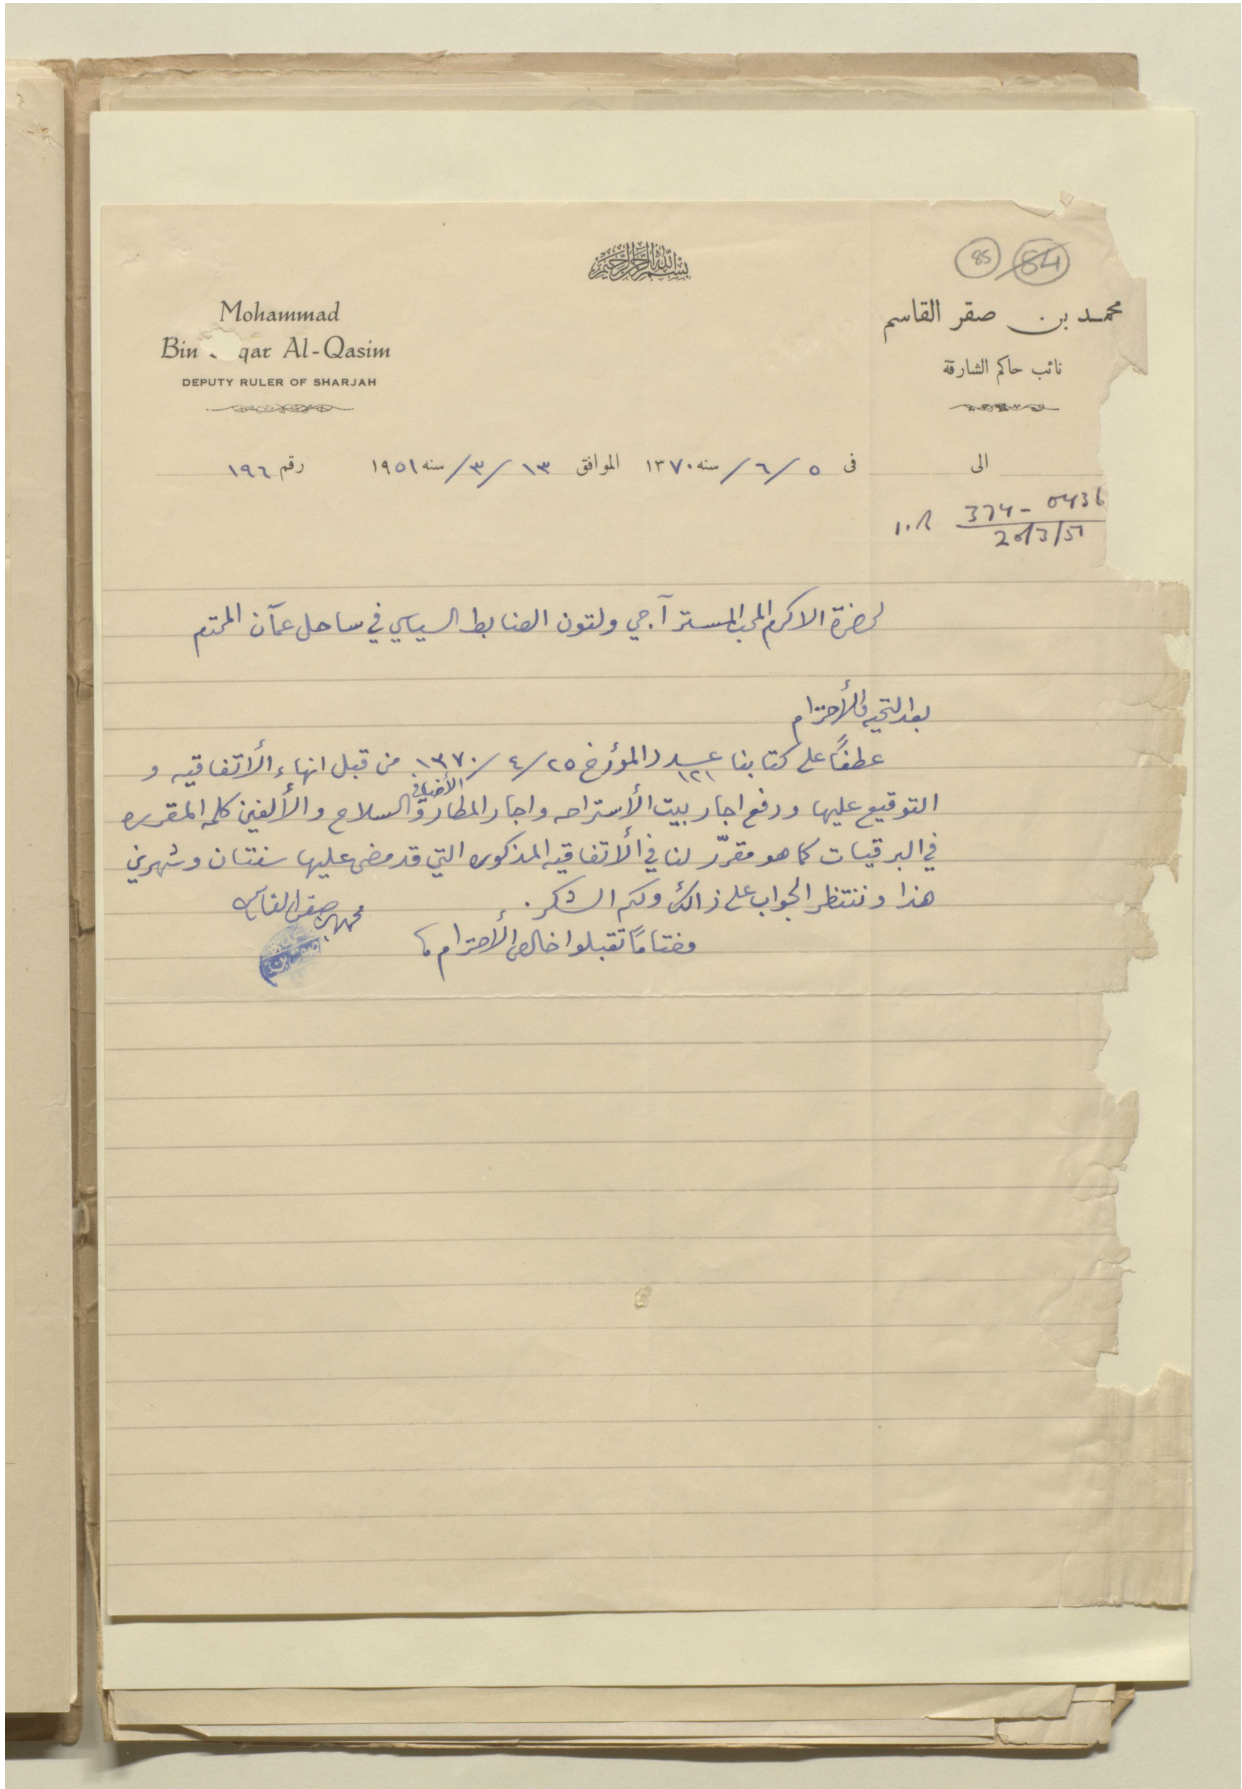 بسم الله الرحمن الرحيم
85 84
Mohammad
Bin qar Al-Qasim
DEPUTY RULER OF SHARJAH
محمد بن صقر القاسم
نائب حاكم الشارقة
الى
فى ٥/٦/سنه ١٣٧٠ الموافق ١٣/٣/سنه ١٩٥١ رقم ١٩٦
374 - 0436
20/3/51
لحضرة الاكرم المحب المستر آ.جي ولتون الضابط السياسي في ساحل عمآن المحترم
بعد التحيه والأحترام
عطفاً على كتابنا عدد ١٢١ المؤرخ ٢٥/٤/١٣٧٠ من قبل انهاء الأتفاقيه و
التوقيع عليها ودفع اجار بيت الأستراحه واجار المطار و السلاح والألفين كلمه المقرره
في البرقيات كما هو مقرّر لنا في الأتفاقيه المذكوره التي قد مضى عليها سنتان وشهرين
هذا وننتظر الجواب على ذالك ولكم الشكر.
وختاماً تقبلوا خالص الأحترام
محمد بن صقر القاسم